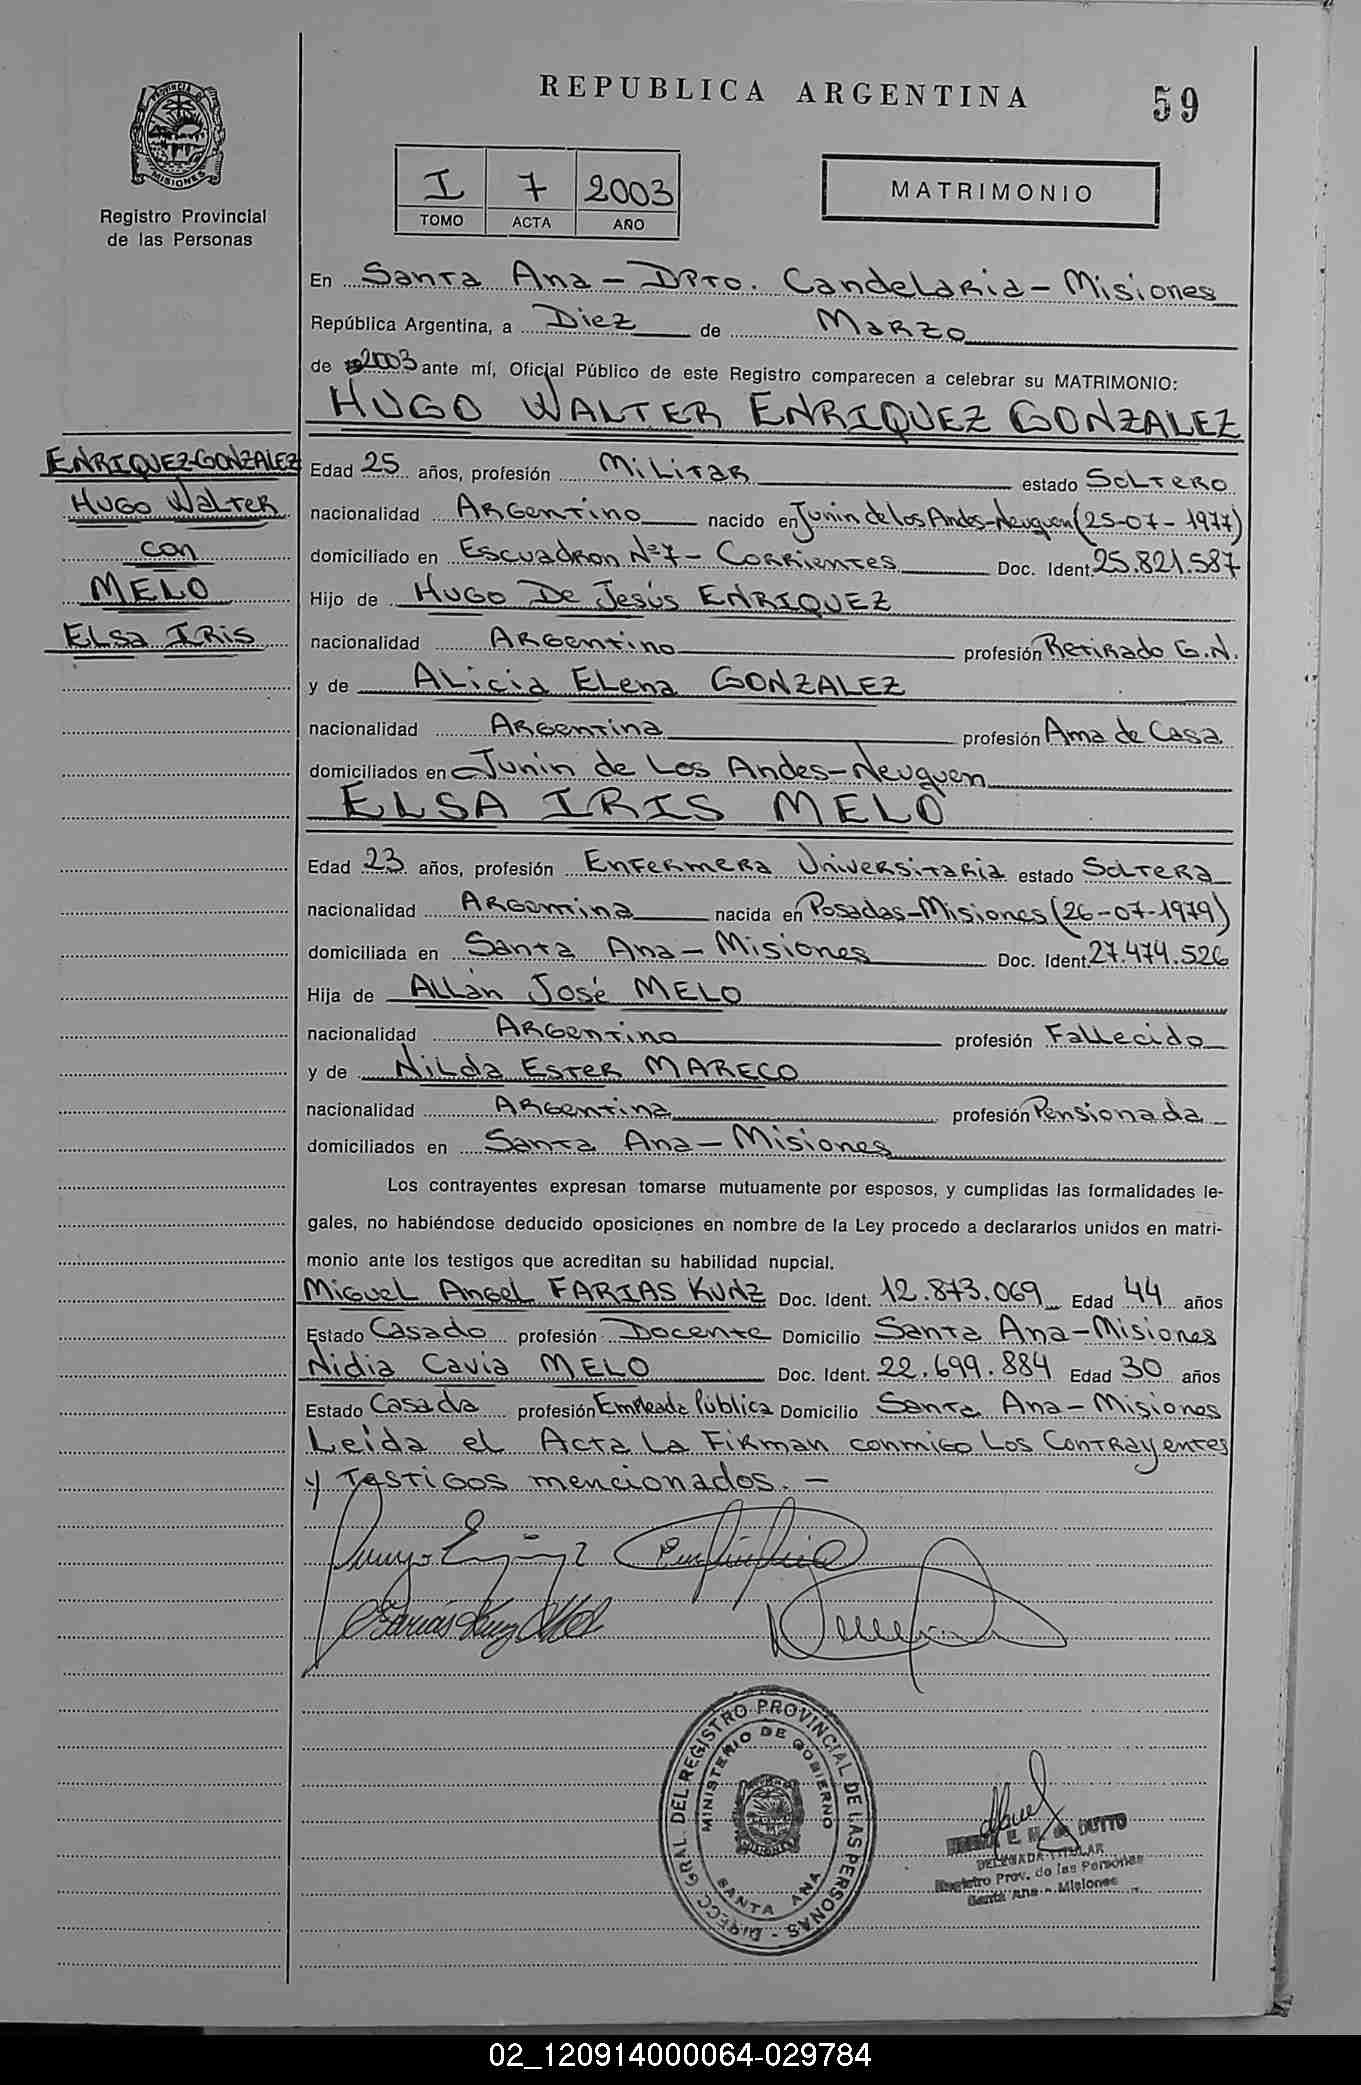 REPUBLICA ARGENTINA
59
PROVINCIA DE
MISIONES
Registro Provincial
de las Personas
I 7 2003
TOMO ACTA AÑO
MATRIMONIO
En Santa Ana - Dpto. Candelaria - Misiones
República Argentina, a Diez de Marzo
de 2003 ante mí, Oficial Público de este Registro comparecen a celebrar su MATRIMONIO:
HUGO WALTER ENRIQUEZ GONZALEZ
ENRIQUEZ-GONZALEZ
Hugo Walter
con
MELO
Elsa Iris
Edad 25 años, profesión Militar estado Soltero
nacionalidad Argentino nacido en Junin de los Andes-Neuquen (25-07-1977)
domiciliado en Escuadron Nº7 - Corrientes Doc. Ident. 25.821.587
Hijo de Hugo De Jesús ENRIQUEZ
nacionalidad Argentino profesión Retirado G.N.
y de Alicia Elena GONZALEZ
nacionalidad Argentina profesión Ama de Casa
domiciliados en Junin de Los Andes-Neuquen
ELSA IRIS MELO
Edad 23 años, profesión Enfermera Universitaria estado Soltera
nacionalidad Argentina nacida en Posadas-Misiones (26-07-1979)
domiciliada en Santa Ana - Misiones Doc. Ident. 27.474.526
Hija de Allán José MELO
nacionalidad Argentino profesión Fallecido
y de Nilda Ester MARECO
nacionalidad Argentina profesión Pensionada
domiciliados en Santa Ana - Misiones
Los contrayentes expresan tomarse mutuamente por esposos, y cumplidas las formalidades le-
gales, no habiéndose deducido oposiciones en nombre de la Ley procedo a declararlos unidos en matri-
monio ante los testigos que acreditan su habilidad nupcial.
Miguel Angel FARIAS KUNZ Doc. Ident. 12.873.069 Edad 44 años
Estado Casado profesión Docente Domicilio Santa Ana - Misiones
Nidia Cavia MELO Doc. Ident. 22.699.884 Edad 30 años
Estado Casada profesión Empleada Pública Domicilio Santa Ana - Misiones
Leida el Acta la Firman conmigo los Contrayentes
y Testigos mencionados. -
DIRECC. GRAL. DEL REGISTRO PROVINCIAL DE LAS PERSONAS -
MINISTERIO DE GOBIERNO
SANTA ANA
E. M. de DUTTO
DELEGADA TITULAR
Registro Prov. de las Personas
Santa Ana - Misiones
02_120914000064-029784